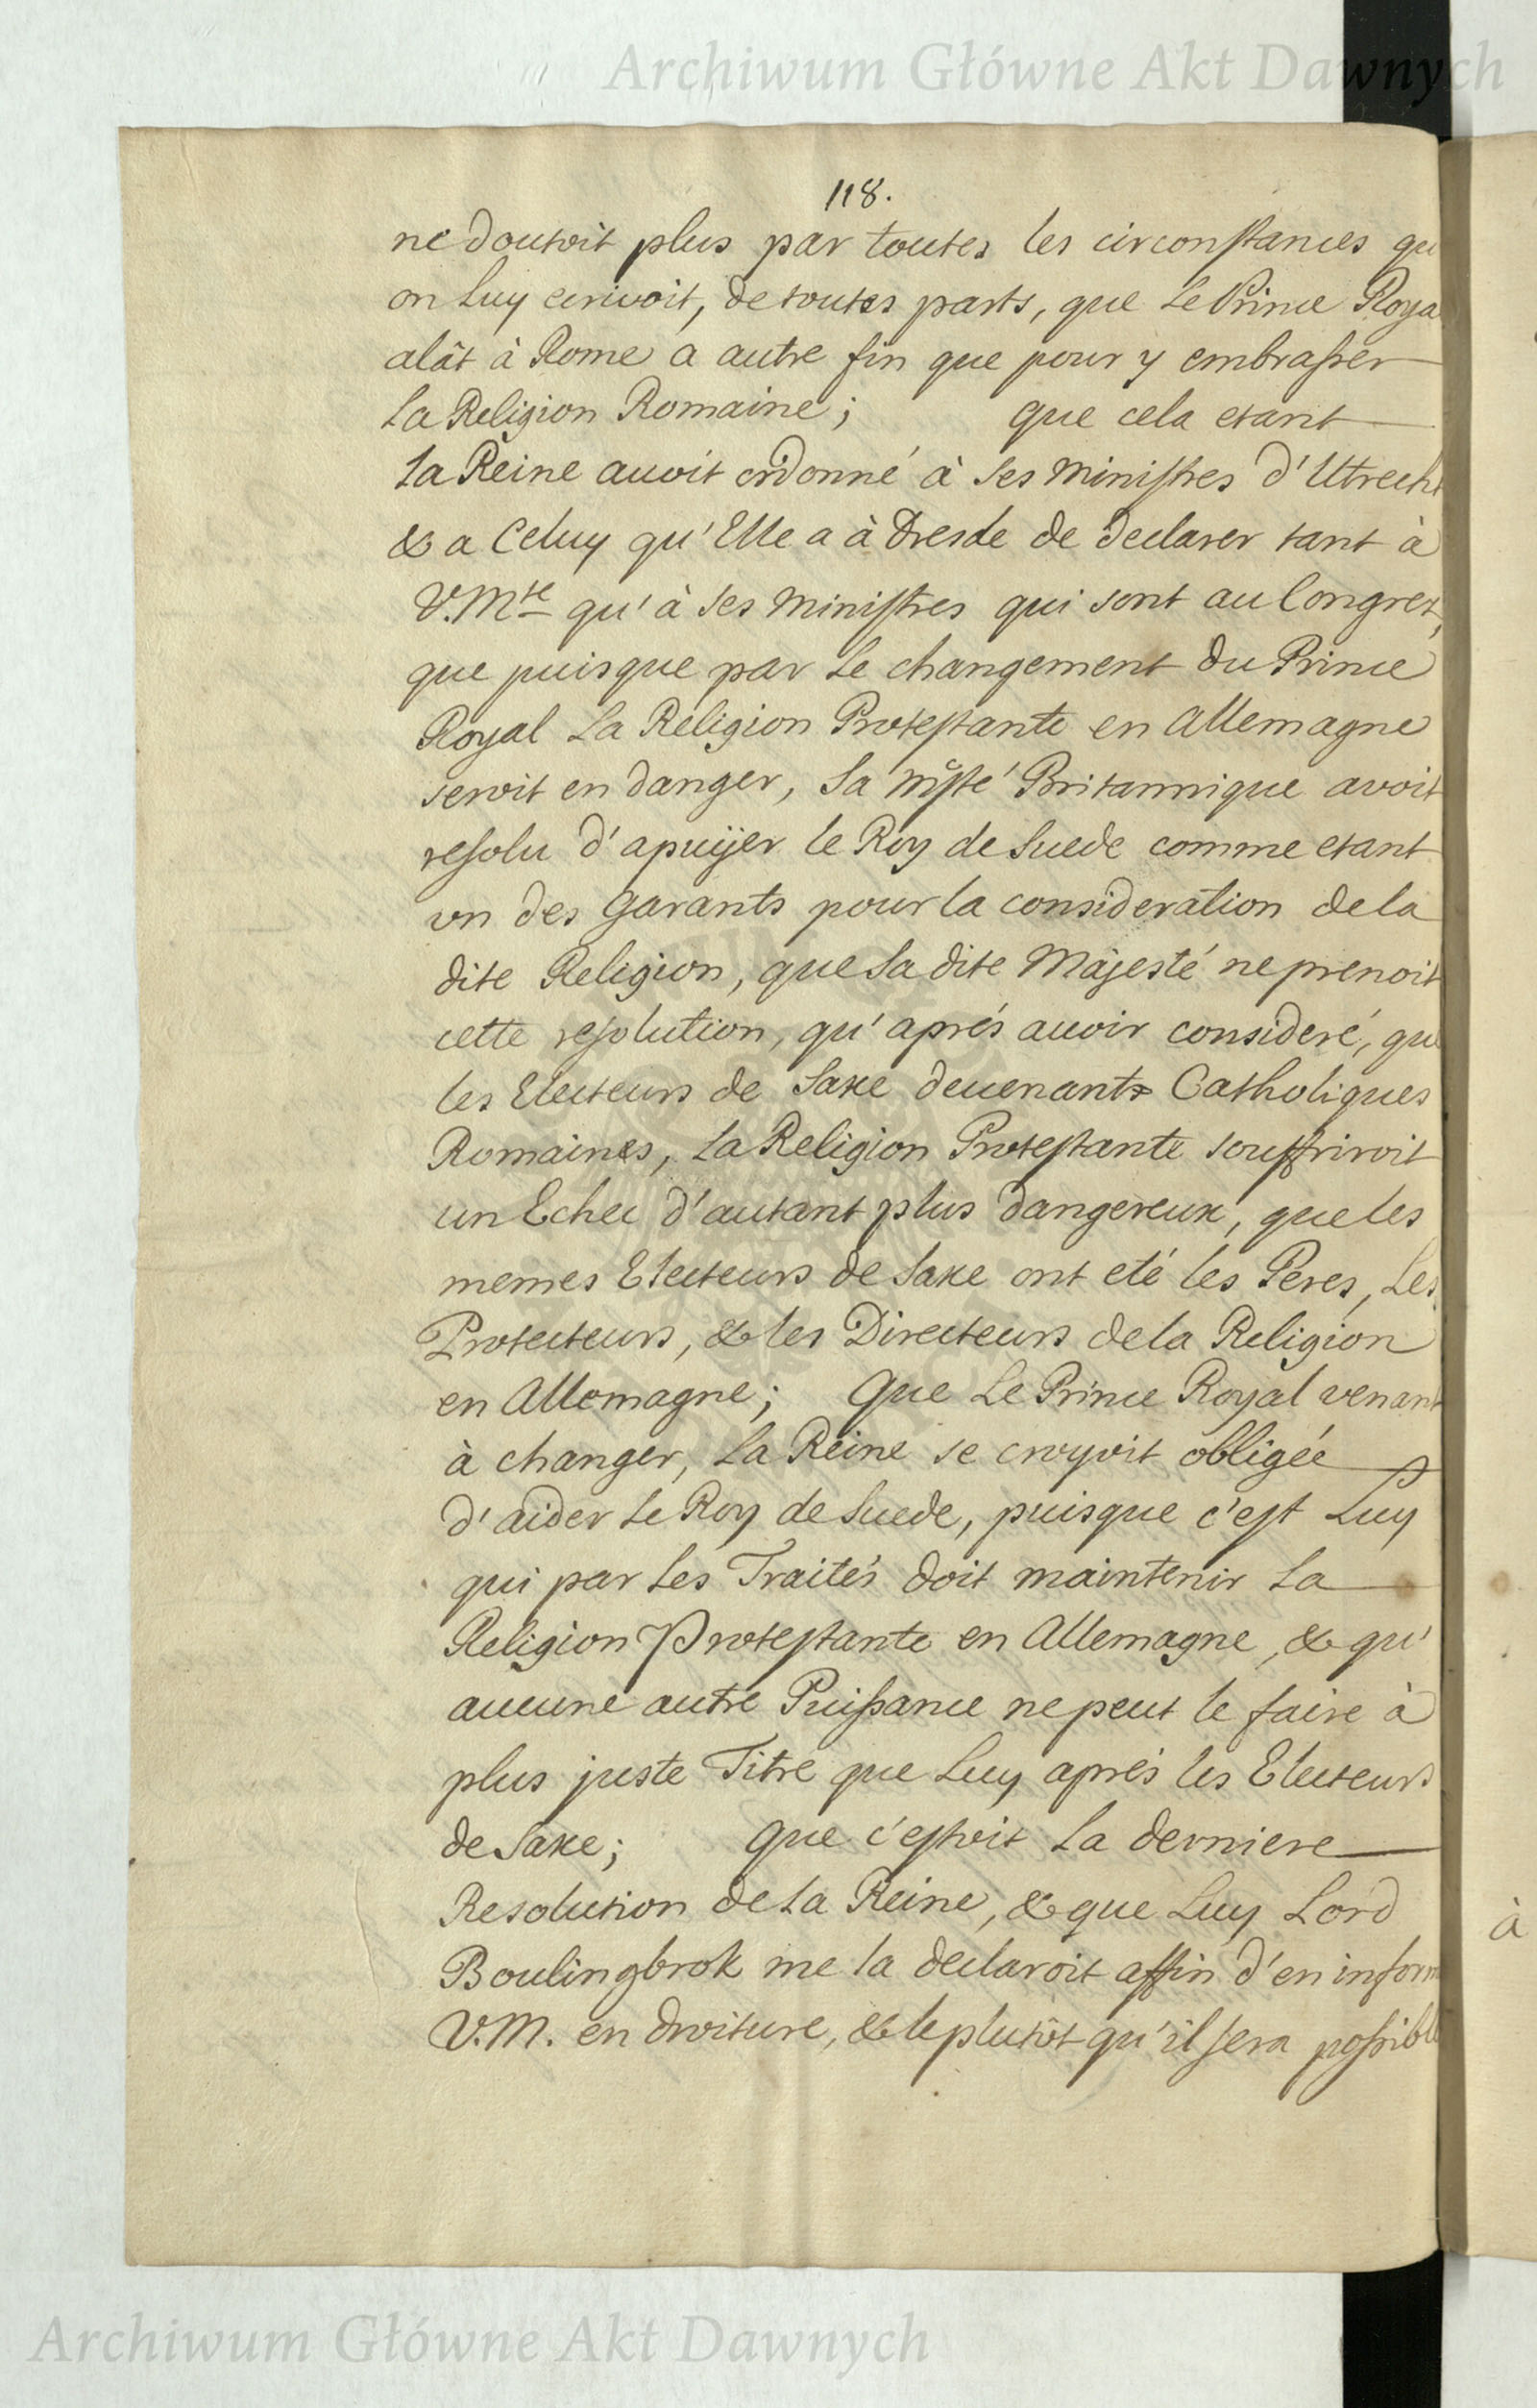 Archiwum Główne Akt Dawnych
118.
ne doutoit plus par toutes les circonstances qu
on Luy ecrivoit, de toutes parts, que Le Prince Roya
alât à Rome a autre fin que pour y embrasser
La Religion Romaine; que cela etant
La Reine avoit ordonné à Ses Ministres d'Utrecht
& a Celuy qu'Elle a à Dresde de declarer tant à
V. Mté qu'à Ses Ministres qui sont au Congrez,
que puisque par Le changement du Prince
Royal La Religion Protestante en Allemagne
seroit en danger, Sa Mté Britannique avoit
resolu d'apuÿer le Roy de Suede comme etant
un des Garants pour la consideration de la
dite Religion, que Sa dite Majesté ne prenoit
cette resolution, qu'aprés auoir consideré, que
les Electeurs de Saxe deuenants Catholiques
Romaines, La Religion Protestante souffriroit
un Echec d'autant plus dangereux, que les
memes Electeurs de Saxe ont eté les Peres, Les
Protecteurs, & les Directeurs de la Religion
en Allemagne; Que Le Prince Royal venant
à changer, La Reine se croyoit obligée
d'aider Le Roy de Suede, puisque c'est Luy
qui par Les Traités doit maintenir La
Religion Protestante en Allemagne, & qu'
aucune autre Puissance ne peut le faire à
plus juste Titre que Luy aprés les Electeurs
de Saxe; Que c'estoit La derniere
Resolution de La Reine, & que Luy Lord
Boulingbrok me la declaroit affin d'en inform
V. M. en droiture, & le plutôt qu'il sera possibl
à
Archiwum Główne Akt Dawnych